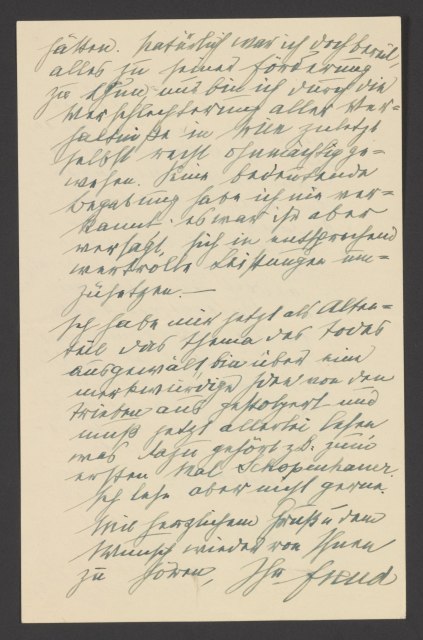 hätten. Natürlich war ich doch bereit,
alles zu seiner Förderung
zu thun und bin ich durch die
Verschlechterung aller Ver-
hältniße in Wien zuletzt
selbst recht ohnmächtig ge-
wesen. Seine bedeutende
Begabung habe ich nie ver-
kannt; es war ihr aber
versagt, sich in entsprechend
wertvolle Leistungen um-
zusetzen. —
Ich habe mir jetzt als Alten-
teil das Thema des Todes
ausgewählt, bin über eine
merkwürdige Idee von den
Trieben aus gestolpert und
muß jetzt allerlei lesen
was dazu gehört z. B. zum
ersten Mal Schopenhauer.
Ich lese aber nicht gerne.
Mit herzlichem Gruß u dem
Wunsch wieder von Ihnen
zu hören, Ihr Freud